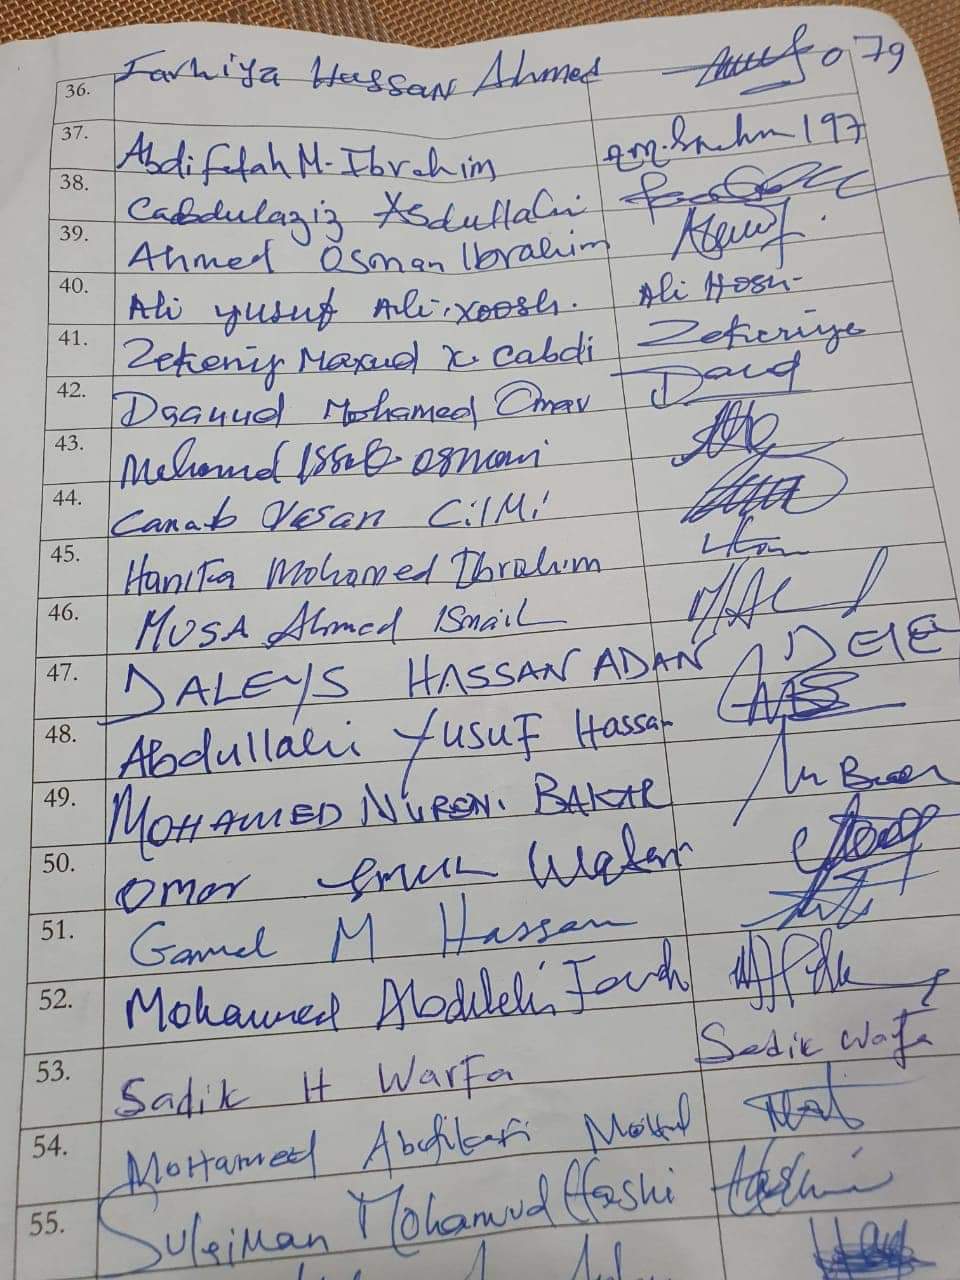 36. Farhiya Hassan Ahmed 079
37. Abdifatah M. Ibrahim 197
38. Cabdulaziz Abdullahi
39. Ahmed Osman Ibrahim
40. Ali yusuf Ali.xoosh. Ali Hosh-
41. Maxud X. Cabdi Zekeriye
42. Daauud Mohamed Omar Daud
43. Mohamed Issak Osman
44. Canab Xasan CilMi
45. Hanifa Mohamed Ibrahim
46. MUSA Ahmed ISmail
47. DALEYS HASSAN ADAN
48. Abdullahi YUSUF Hassan
49. MOHAMED NUREN. BAKAR
50. Omar
51. Gamal M Hassan
52. Mohamed
53. Sadik H WarFa Sadik Warfa
54. MoHamed
55. SuleiMan Mohamud Hashi Hashi